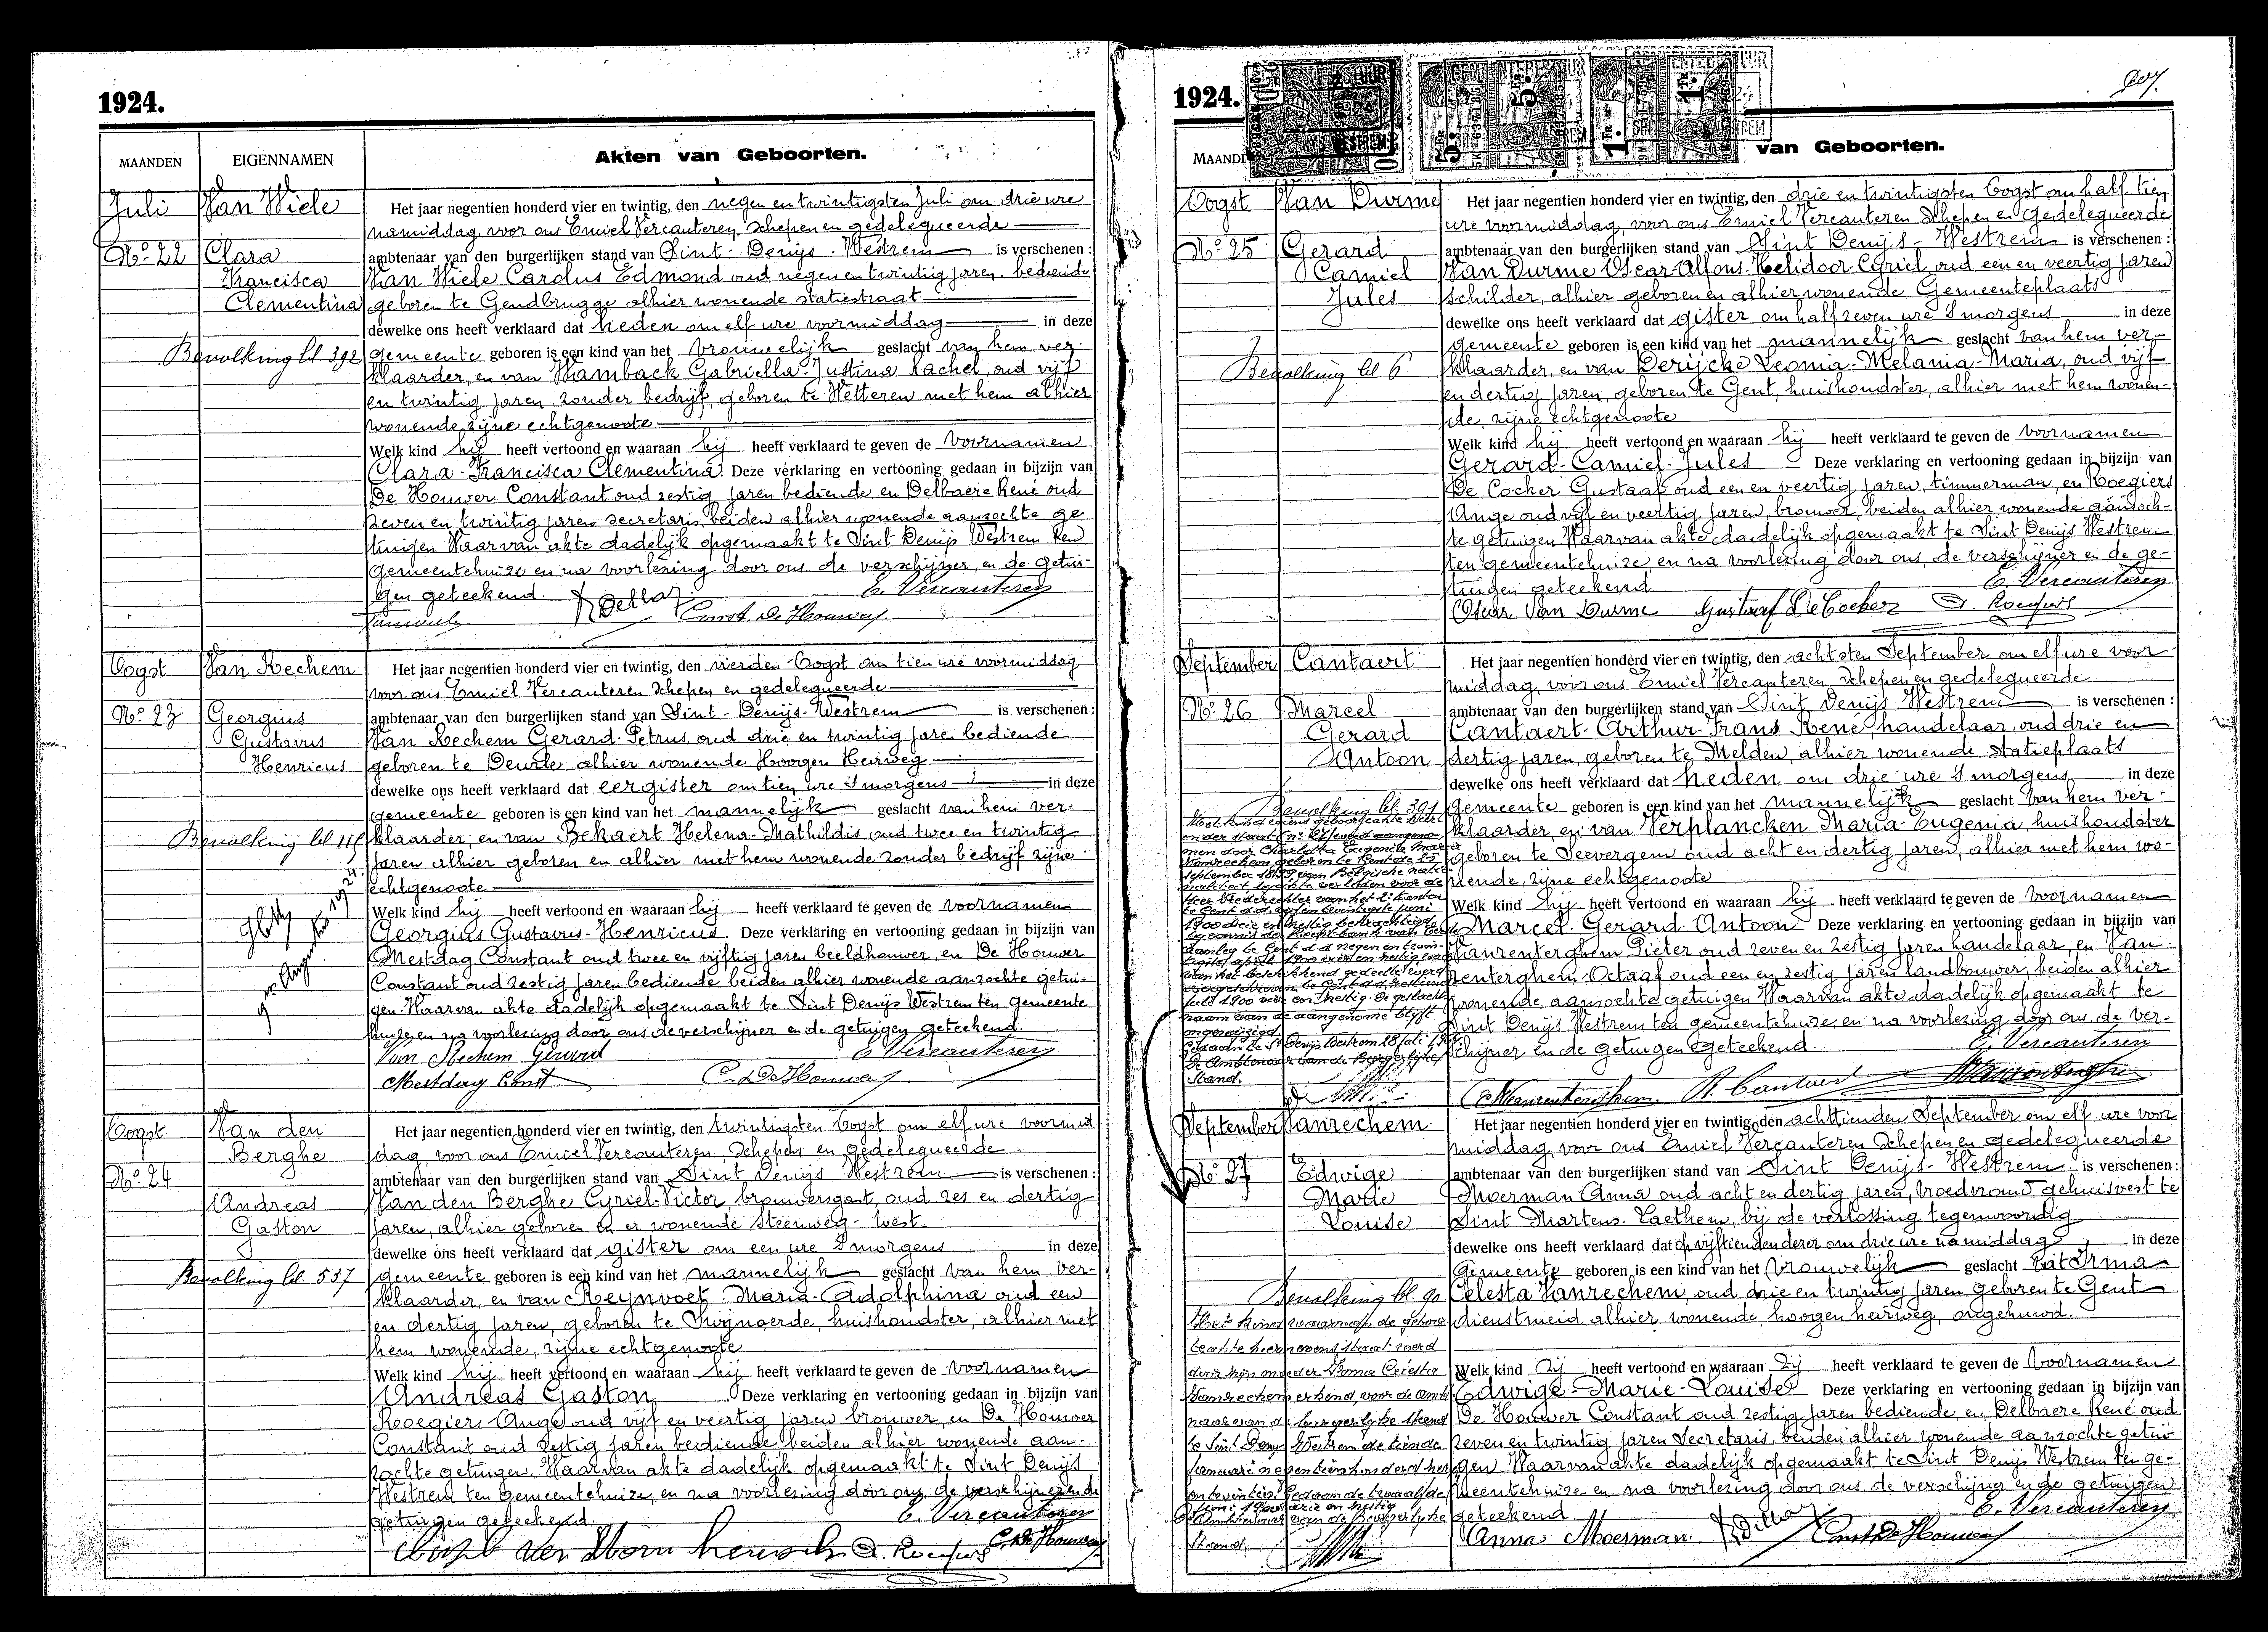 1924.
MAANDEN
EIGENNAMEN
Akten van Geboorten.
Juli
Van Wiele
Het jaar negentien honderd vier en twintig, den negen en twintigsten Juli om drie ure
namiddag, voor ons Emiel Vercauteren, Schepen en gedelegueerde
No. 22
Clara
ambtenaar van den burgerlijken stand van Sint-Denijs-Westrem is verschenen:
Francisca
Van Wiele Carolus Edmond oud negen en twintig jaren, bediende
Clementina
geboren te Gendbrugge alhier wonende statiestraat
dewelke ons heeft verklaard dat heden om elf ure voormiddag in deze
Bevolking bl 392
gemeente geboren is een kind van het vrouwelijk geslacht van hem ver-
klaarder, en van Hamback Gabriella Justina Rachel, oud vijf
en twintig jaren, zonder bedrijf, geboren te Wetteren met hem alhier
wonende, zijne echtgenoote
Welk kind hij heeft vertoond en waaraan hij heeft verklaard te geven de voornamen
Clara-Francisca Clementina Deze verklaring en vertooning gedaan in bijzijn van
De Houwer Constant oud zestig jaren bediende en Delbaere René oud
zeven en twintig jaren secretaris, beiden alhier wonende aanzochte ge
tuigen Waarvan akte dadelijk opgemaakt te Sint Denijs Westrem ten
gemeentehuize en na voorlezing door ons de verschijner, en de getui-
gen geteekend.
E. Vercauteren
Const. De Houwer
Oogst
Van Rechem
Het jaar negentien honderd vier en twintig, den vierden Oogst om tien ure voormiddag
voor ons Emiel Vercauteren Schepen en gedelegueerde
No. 23
Georgius
ambtenaar van den burgerlijken stand van Sint-Denijs-Westrem is verschenen:
Gustavus
Van Rechem Gerard-Petrus oud drie en twintig jaren bediende
Henricus
geboren te Deurle, alhier wonende Hoogen Heirweg
dewelke ons heeft verklaard dat eergister om tien ure 's morgens in deze
gemeente geboren is een kind van het mannelijk geslacht van hem ver-
Bevolking bl 115
klaarder, en van Bekaert Helena-Mathildis oud twee en twintig
jaren alhier geboren en alhier met hem wonende zonder bedrijf zijne
echtgenoote
Welk kind hij heeft vertoond en waaraan hij heeft verklaard te geven de voornamen
Georgius Gustavus-Henricus Deze verklaring en vertooning gedaan in bijzijn van
Mestdag Constant oud twee en vijftig jaren beeldhouwer, en De Houwer
Constant oud zestig jaren bediende beiden alhier wonende aanzochte getui-
gen. Waarvan akte dadelijk opgemaakt te Sint Denijs Westrem ten gemeente
huize, en na voorlezing door ons de verschijner en de getuigen geteekend.
Van Rechem Gerard
E Vercauteren
Mestdag Const
C. De Houwer
Oogst
Van den
Het jaar negentien honderd vier en twintig, den twintigsten Oogst om elf ure voormid
Berghe
dag, voor ons Emiel Vercauteren, Schepen en gedelegueerde
No. 24
ambtenaar van den burgerlijken stand van Sint Denijs Westrem is verschenen:
Andreas
Van den Berghe Cyriel-Victor, brouwersgast, oud zes en dertig
Gaston
jaren, alhier geboren en er wonende Steenweg-West
dewelke ons heeft verklaard dat gister om een ure 's morgens in deze
Bevolking bl. 537
gemeente geboren is een kind van het mannelijk geslacht van hem ver-
klaarder, en van Reynvoet Maria-Adolphina oud een
en dertig jaren, geboren te Zwijnaerde, huishoudster, alhier met
hem wonende, zijne echtgenoote
Welk kind hij heeft vertoond en waaraan hij heeft verklaard te geven de voornamen
Andreas Gaston Deze verklaring en vertooning gedaan in bijzijn van
Roegiers Ange oud vijf en veertig jaren brouwer, en De Houwer
Constant oud zestig jaren bediende beiden alhier wonende aan-
zochte getuigen. Waarvan akte dadelijk opgemaakt te Sint Denijs
Westrem ten gemeentehuize, en na voorlezing door ons de verschijner en de
getuigen geteekend.
E. Vercauteren
C. De Houwer
1924.
van Geboorten.
Oogst
Van Durme
Het jaar negentien honderd vier en twintig, den drie en twintigsten Oogst om half tien
ure voormiddag, voor ons Emiel Vercauteren Schepen en gedelegueerde
No. 25
Gerard
ambtenaar van den burgerlijken stand van Sint Denijs-Westrem is verschenen:
Camiel
Van Durme Oscar-Alfons-Helidoor Cyriel, oud een en veertig jaren
Jules
schilder, alhier geboren en alhier wonende Gemeenteplaats
dewelke ons heeft verklaard dat gister om half zeven ure 's morgens in deze
gemeente geboren is een kind van het mannelijk geslacht van hem ver-
Bevolking bl 6
klaarder, en van Derijcke Leonia-Melania-Maria, oud vijf
en dertig jaren, geboren te Gent, huishoudster, alhier met hem wonen-
de, zijne echtgenoote
Welk kind hij heeft vertoond en waaraan hij heeft verklaard te geven de voornamen
Gerard-Camiel-Jules Deze verklaring en vertooning gedaan in bijzijn van
De Cocker Gustaaf oud een en veertig jaren, timmerman, en Roegiers
Ange oud vijf en veertig jaren, brouwer, beiden alhier wonende aanzoch-
te getuigen Waarvan akte dadelijk opgemaakt te Sint Denijs Westrem
ten gemeentehuize, en na voorlezing door ons, de verschijner en de ge-
tuigen geteekend
E. Vercauteren
Oscar Van Durme Gustaaf De Cocker A. Roegiers
September
Cantaert
Het jaar negentien honderd vier en twintig, den achtsten September om elf ure voor
middag, voor ons Emiel Vercauteren, Schepen en gedelegueerde
No. 26
Marcel
ambtenaar van den burgerlijken stand van Sint Denijs Westrem is verschenen:
Gerard
Cantaert-Arthur-Frans René, handelaar, oud drie en
Antoon
dertig jaren, geboren te Melden, alhier wonende Statieplaats
dewelke ons heeft verklaard dat heden om drie ure 's morgens in deze
Bevolking bl. 391
gemeente geboren is een kind van het mannelijk geslacht van hem ver-
klaarder, en van Verplancken Maria-Eugenia, huishoudster
geboren te Seevergem oud acht en dertig jaren, alhier met hem wo-
nende, zijne echtgenoote
Welk kind hij heeft vertoond en waaraan hij heeft verklaard te geven de voornamen
Marcel-Gerard-Antoon Deze verklaring en vertooning gedaan in bijzijn van
Vanrenterghem Pieter oud zeven en zestig jaren handelaar, en Van-
renterghem Octaaf oud een en zestig jaren landbouwer, beiden alhier
wonende aanzochte getuigen Waarvan akte dadelijk opgemaakt te
Sint Denijs Westrem ten gemeentehuize, en na voorlezing door ons, de ver-
schijner en de getuigen geteekend.
E. Vercauteren
naam van de aangenome blijft
ongewijzigd.
De Ambtenaar van de Burgerlijke
Stand.
September
Vanrechem
Het jaar negentien honderd vier en twintig, den achttienden September om elf ure voor
middag, voor ons Emiel Vercauteren Schepen en gedelegueerde
No. 27
Edwige
ambtenaar van den burgerlijken stand van Sint Denijs-Westrem is verschenen:
Marie
Moerman Anna oud acht en dertig jaren, vroedvrouw gehuisvest te
Louise
Sint Martens-Laethem, bij de verlossing tegenwoordig
dewelke ons heeft verklaard dat op vijftienden dezer om drie ure namiddag in deze
Gemeente geboren is een kind van het vrouwelijk geslacht uit Irma
Bevolking bl. 90
Celesta Vanrechem, oud drie en twintig jaren geboren te Gent
dienstmeid alhier wonende, hoogen heirweg, ongehuwd.
Het kind waarvan de geboor
teakte hiernevens staat werd
door zijn moeder Irma Celesta
Vanrechem erkend, voor de ambte
naar van de burgerlijke stand
te Sint Denys Westrem de tiende
Welk kind zij heeft vertoond en waaraan zij heeft verklaard te geven de voornamen
Edwige-Marie-Louise Deze verklaring en vertooning gedaan in bijzijn van
De Houwer Constant oud zestig jaren bediende, en Delbaere René oud
zeven en twintig jaren Secretaris, beiden alhier wonende aanzochte getui-
gen Waarvan akte dadelijk opgemaakt te Sint Denijs Westrem ten ge-
meentehuize en na voorlezing door ons, de verschijner en de getuigen
geteekend
E. Vercauteren
Anna Moerman Const De Houwer
Stand.